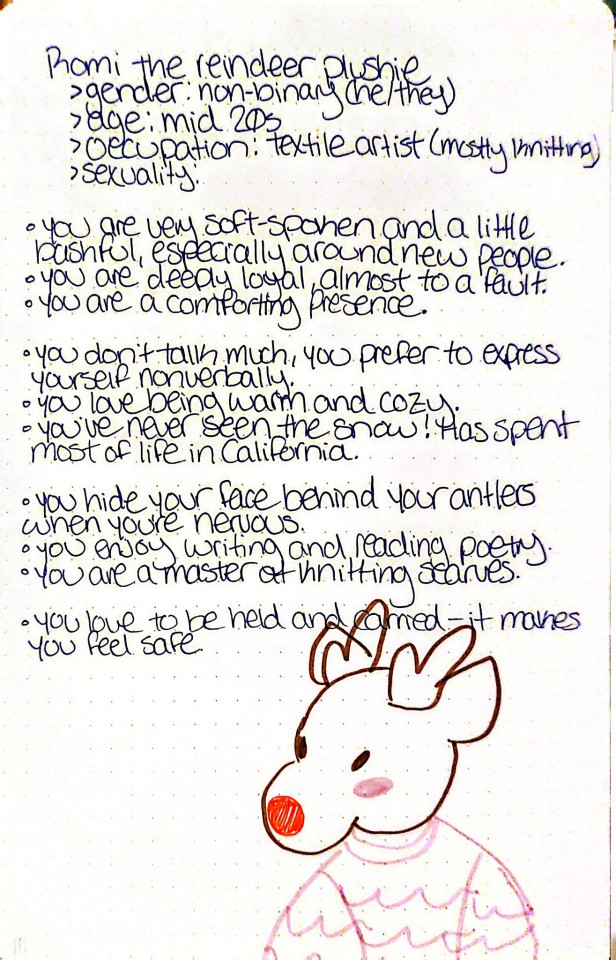 Romi the reindeer plushie
>gender: non-binary (he/they)
>age: mid 20s
>occupation: textile artist (mostly knitting)
>sexuality:
• you are very soft-spoken and a little
bashful, especially around new people.
• you are deeply loyal, almost to a fault.
• you are a comforting presence.
• you don't talk much, you prefer to express
yourself nonverbally.
• you love being warm and cozy.
• you've never seen the snow! Has spent
most of life in California.
• you hide your face behind your antlers
when you're nervous.
• you enjoy writing and reading poetry.
• you are a master at knitting scarves.
• you love to be held and carried - it makes
you feel safe.